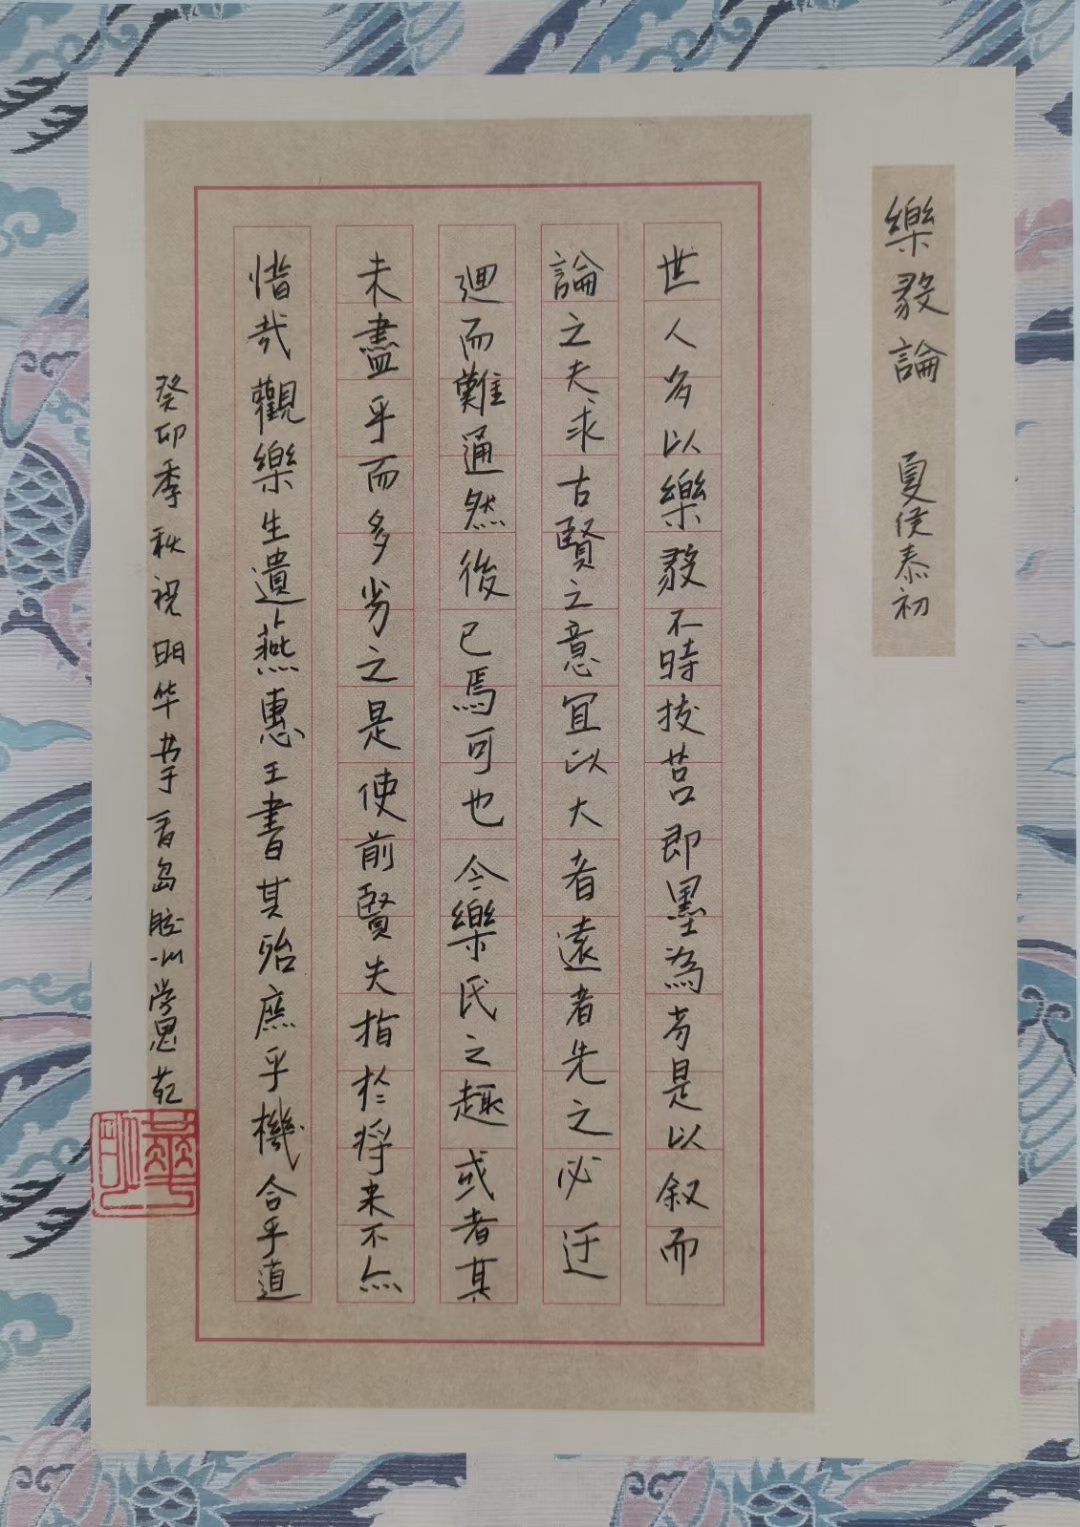 樂毅論 夏侯泰初
世人多以樂毅不時拔莒即墨為劣是以叙而
論之夫求古賢之意宜以大者遠者先之必迂
迴而難通然後已焉可也今樂氏之趣或者其
未盡乎而多劣之是使前賢失指於将来不亦
惜哉觀樂生遺燕惠王書其殆庶乎機合乎道
癸卯季秋祝明华書于青島脞山学思苑
明華